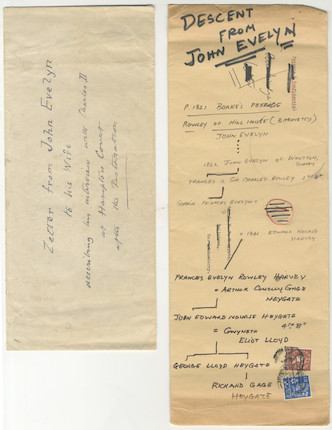 Letter from John Evelyn
to his Wife
describing his interview with Charles II
at Hampton Court
after the Restoration
DESCENT
FROM
JOHN EVELYN
P. 1821 BURKE'S PEERAGE
ROWLEY OF HILL HOUSE (BARONETCY)
JOHN EVELYN
JOHN EVELYN OF WOOTTON,
FRANCES = SIR CHARLES ROWLEY 1ST BT
SOPHIA FRANCES EVELYN
= 1831 EDWARD NOURSE
HARVEY
FRANCES EVELYN ROWLEY HARVEY
= ARTHUR CONOLLY GAGE
HEYGATE
JOHN EDWARD NOURSE HEYGATE
4TH BT
= GWYNETH
ELIOT LLOYD
GEORGE LLOYD HEYGATE
RICHARD GAGE
HEYGATE